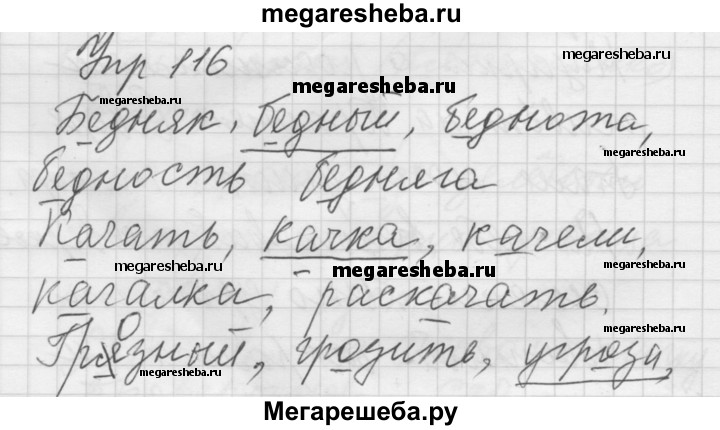 megaresheba.ru
Упр 116
megaresheba.ru
megaresheba.ru
megaresheba.ru
Бедняк, бедный, беднота,
megaresheba.ru
бедность бедняга
Качать, качка, качели,
megaresheba.ru
megaresheba.ru
качалка, раскачать.
megaresheba.ru
Грозный, грозить, угроза,
megaresheba.ru
Мегарешеба.ру